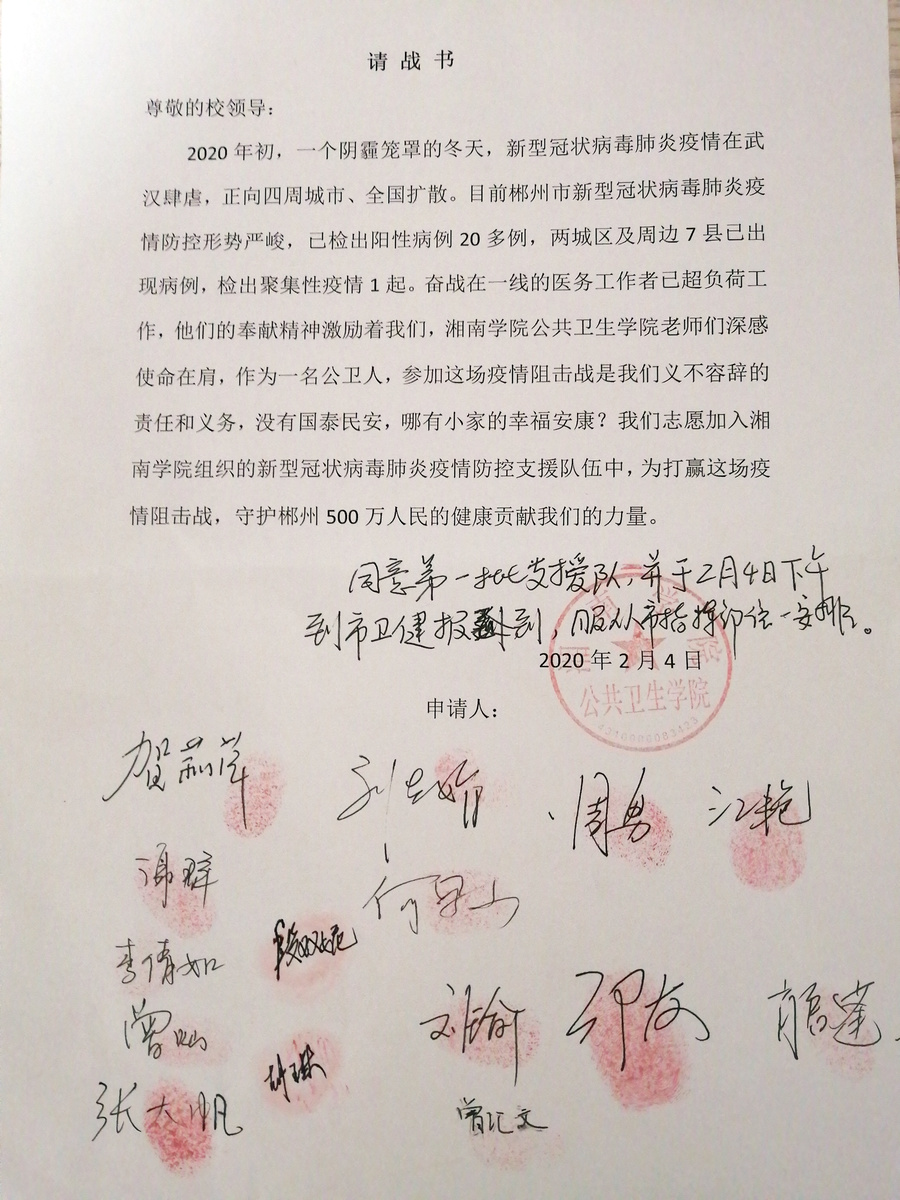 请战书
尊敬的校领导：
2020 年初，一个阴霾笼罩的冬天，新型冠状病毒肺炎疫情在武
汉肆虐，正向四周城市、全国扩散。目前郴州市新型冠状病毒肺炎疫
情防控形势严峻，已检出阳性病例 20 多例，两城区及周边 7 县已出
现病例，检出聚集性疫情 1 起。奋战在一线的医务工作者已超负荷工
作，他们的奉献精神激励着我们，湘南学院公共卫生学院老师们深感
使命在肩，作为一名公卫人，参加这场疫情阻击战是我们义不容辞的
责任和义务，没有国泰民安，哪有小家的幸福安康？我们志愿加入湘
南学院组织的新型冠状病毒肺炎疫情防控支援队伍中，为打赢这场疫
情阻击战，守护郴州 500 万人民的健康贡献我们的力量。
同意第一批支援队，并于2月4日下午
到市卫健报到，服从市指挥部统一安排。
2020 年 2 月 4 日
公共卫生学院
申请人：
贺莉萍
周勇
江艳
李倩如
曾灿
刘鍮
邓友
张大帆
胡瑛